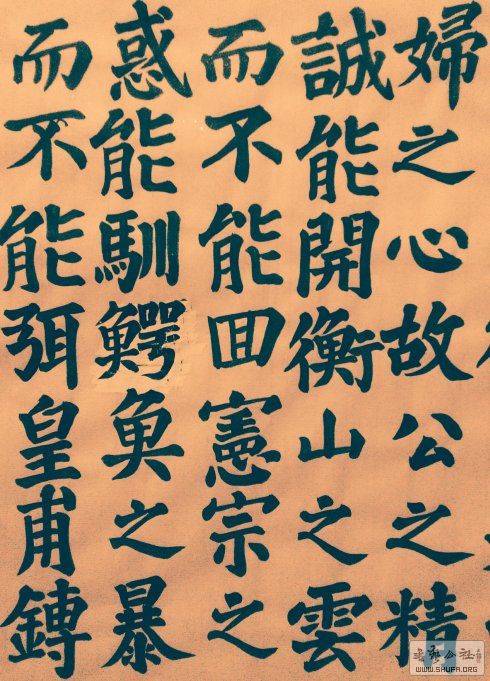 婦之心故公之精
誠能開衡山之雲
而不能回憲宗之
惑能馴鰐魚之暴
而不能弭皇甫鎛
WWW.SHUFA.ORG